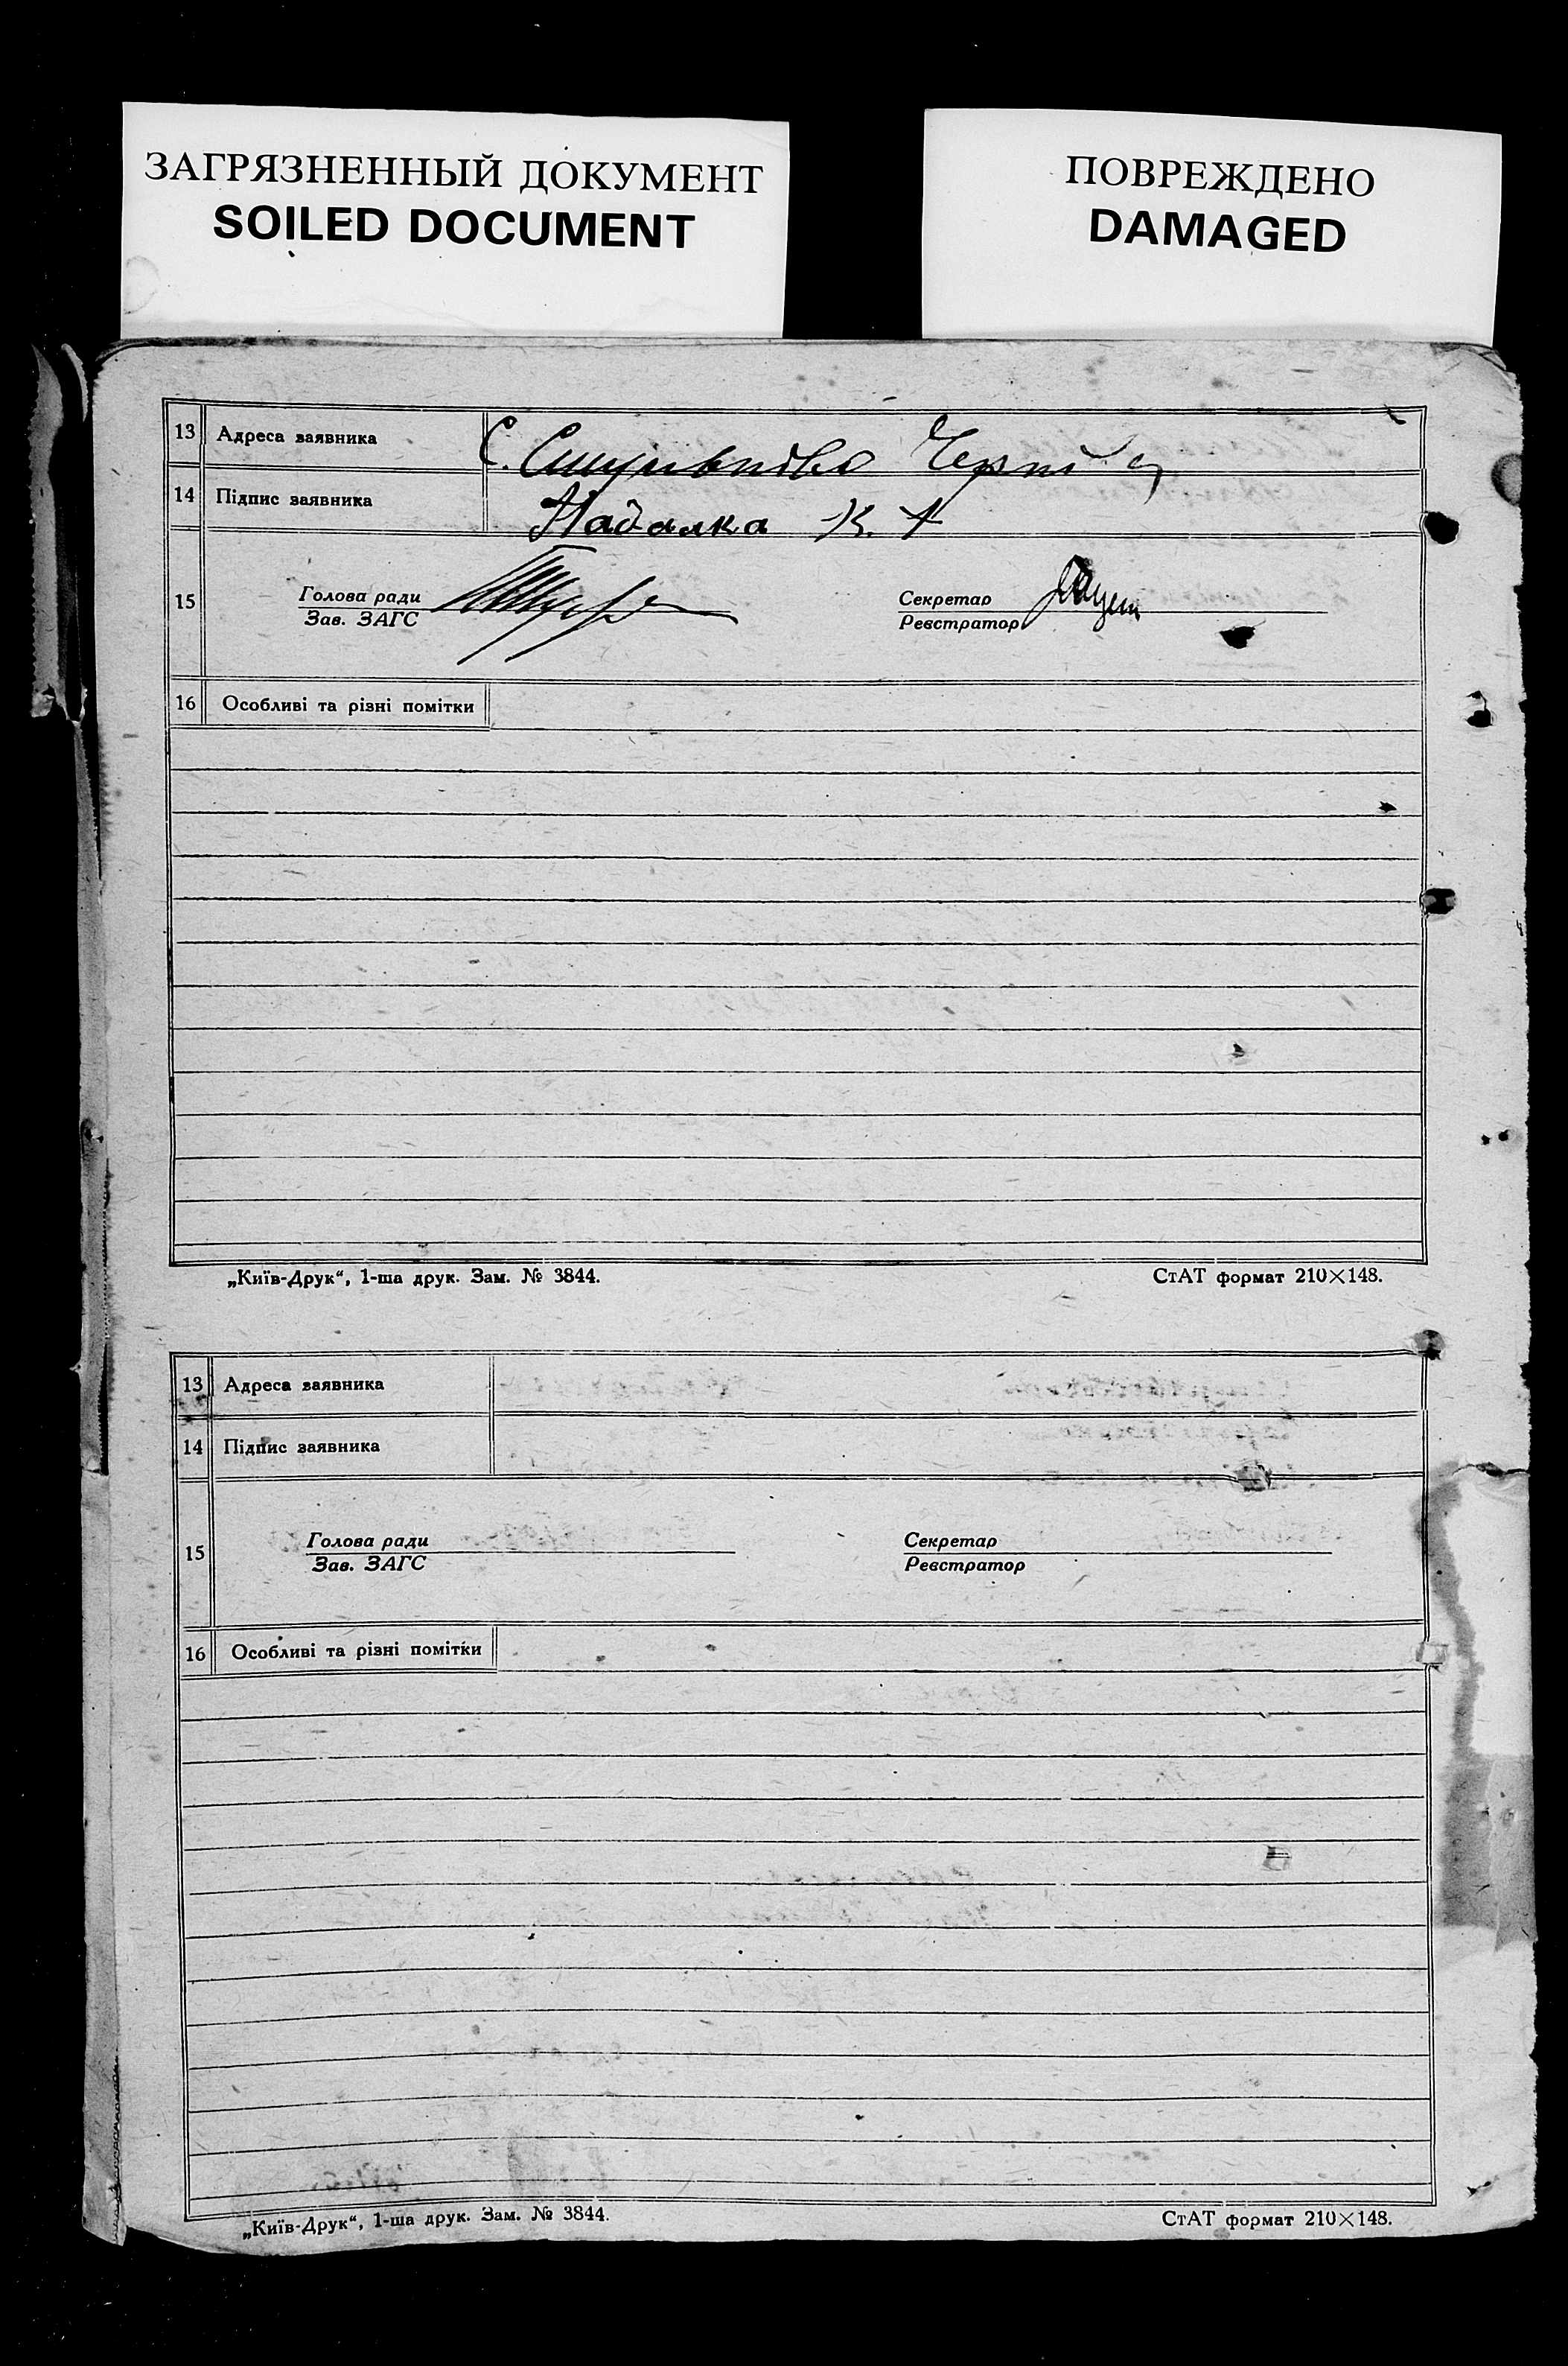 ЗАГРЯЗНЕННЫЙ ДОКУМЕНТ
SOILED DOCUMENT
ПОВРЕЖДЕНО
DAMAGED
13 Адреса заявника С.
14 Підпис заявника Надалка К. А
15 Голова ради
Зав. ЗАГС
Секретар
Реєстратор
16 Особливі та різні помітки
„Київ-Друк“, 1-ша друк. Зам. № 3844.
СтАТ формат 210×148.
13 Адреса заявника
14 Підпис заявника
15 Голова ради
Зав. ЗАГС
Секретар
Реєстратор
16 Особливі та різні помітки
„Київ-Друк“, 1-ша друк. Зам. № 3844.
СтАТ формат 210×148.